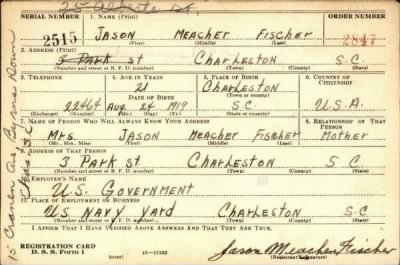 25 Alberta St.
SERIAL NUMBER 1. NAME (Print) ORDER NUMBER
2515 JASON MEACHER FISCHER 2847
(First) (Middle) (Last)
2. ADDRESS (Print)
3 PARK St CHARLESTON S.C.
(Number and street or R. F. D. number) (Town) (County) (State)
3. TELEPHONE 4. AGE IN YEARS 5. PLACE OF BIRTH 6. COUNTRY OF CITIZENSHIP
21 CHARLESTON
DATE OF BIRTH (Town or county)
22464 Aug. 24 1919 S.C. U.S.A.
(Exchange) (Number) (Mo.) (Day) (Yr.) (State or country)
7. NAME OF PERSON WHO WILL ALWAYS KNOW YOUR ADDRESS 8. RELATIONSHIP OF THAT PERSON
Mrs. JASON MEACHER FISCHER MOTHER
(Mr., Mrs., Miss) (First) (Middle) (Last)
9. ADDRESS OF THAT PERSON
3 PARK St CHARLESTON S.C.
(Number and street or R. F. D. number) (Town) (County) (State)
10. EMPLOYER'S NAME
U.S. GOVERNMENT
11. PLACE OF EMPLOYMENT OR BUSINESS
U.S. NAVY YARD CHARLESTON S.C.
(Number and street or R. F. D. number) (Town) (County) (State)
I AFFIRM THAT I HAVE VERIFIED ABOVE ANSWERS AND THAT THEY ARE TRUE.
REGISTRATION CARD
D. S. S. Form 1 (over) Jason Meacher Fischer
(Registrant's signature)